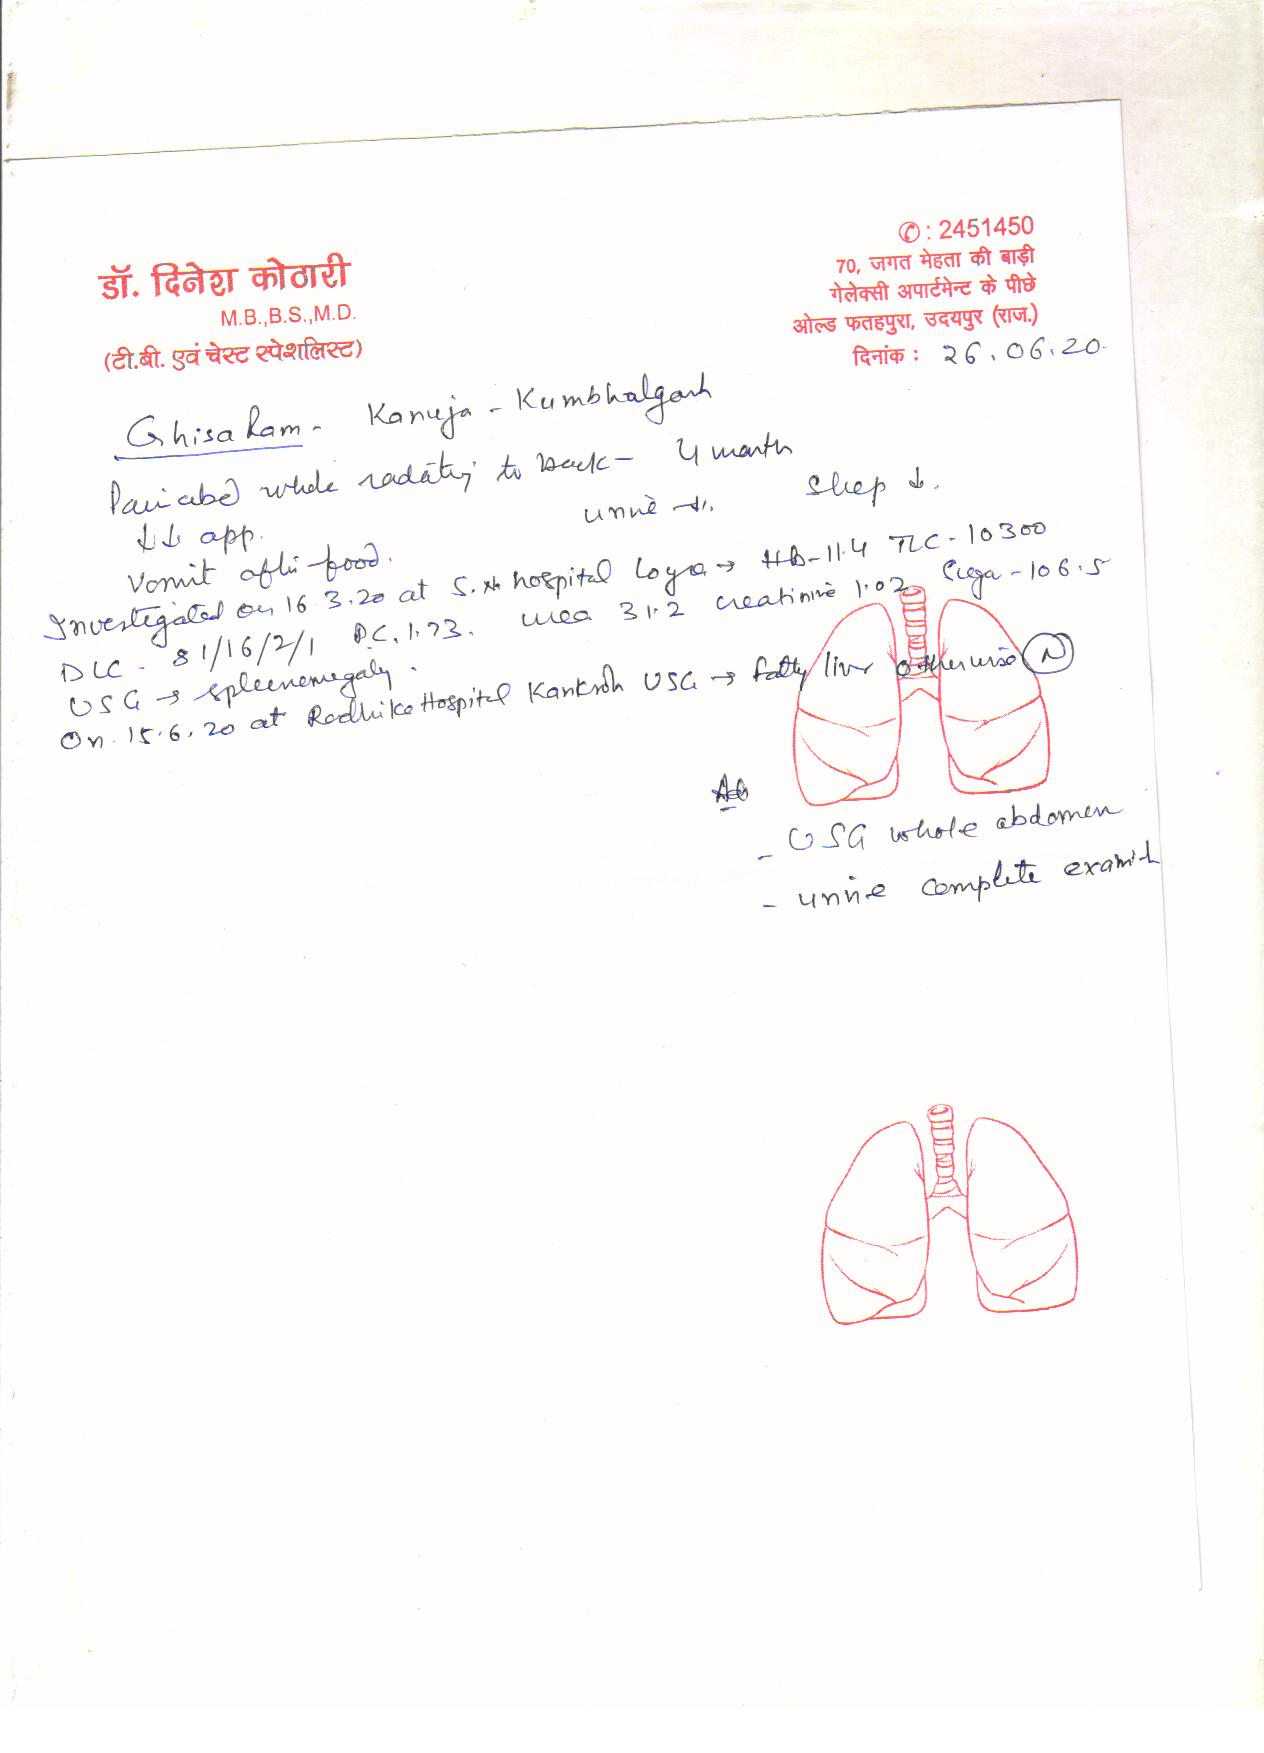 ✆: 2451450
70, जगत मेहता की बाड़ी
गेलेक्सी अपार्टमेन्ट के पीछे
ओल्ड फतहपुरा, उदयपुर (राज.)
दिनांक : 26.06.20
डॉ. दिनेश कोठारी
M.B.,B.S.,M.D.
(टी.बी. एवं चेस्ट स्पेशलिस्ट)
Ghisa Ram - Kanuja - Kumbhalgarh
Pain abd whole radiating to back - 4 month
↓↓ app. urine Sleep ↓.
Vomit after food.
Investigated on 16.3.20 at S.N. hospital → HB-11.4 TLC-10300
DLC - 81/16/2/1 P.C. 1.73. urea 31.2 creatinine 1.02 - 106.5
USG → spleenomegaly.
On 15.6.20 at Radhika Hospital USG → fatty liver otherwise N
- USG whole abdomen
- urine complete